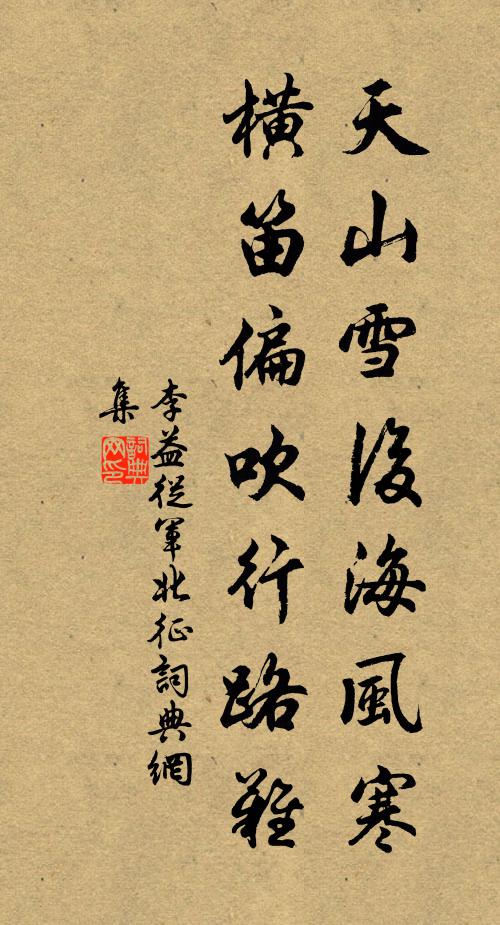 天山雪後海風寒
橫笛偏吹行路難
李益從軍北征詞典網
集
詞典
网印